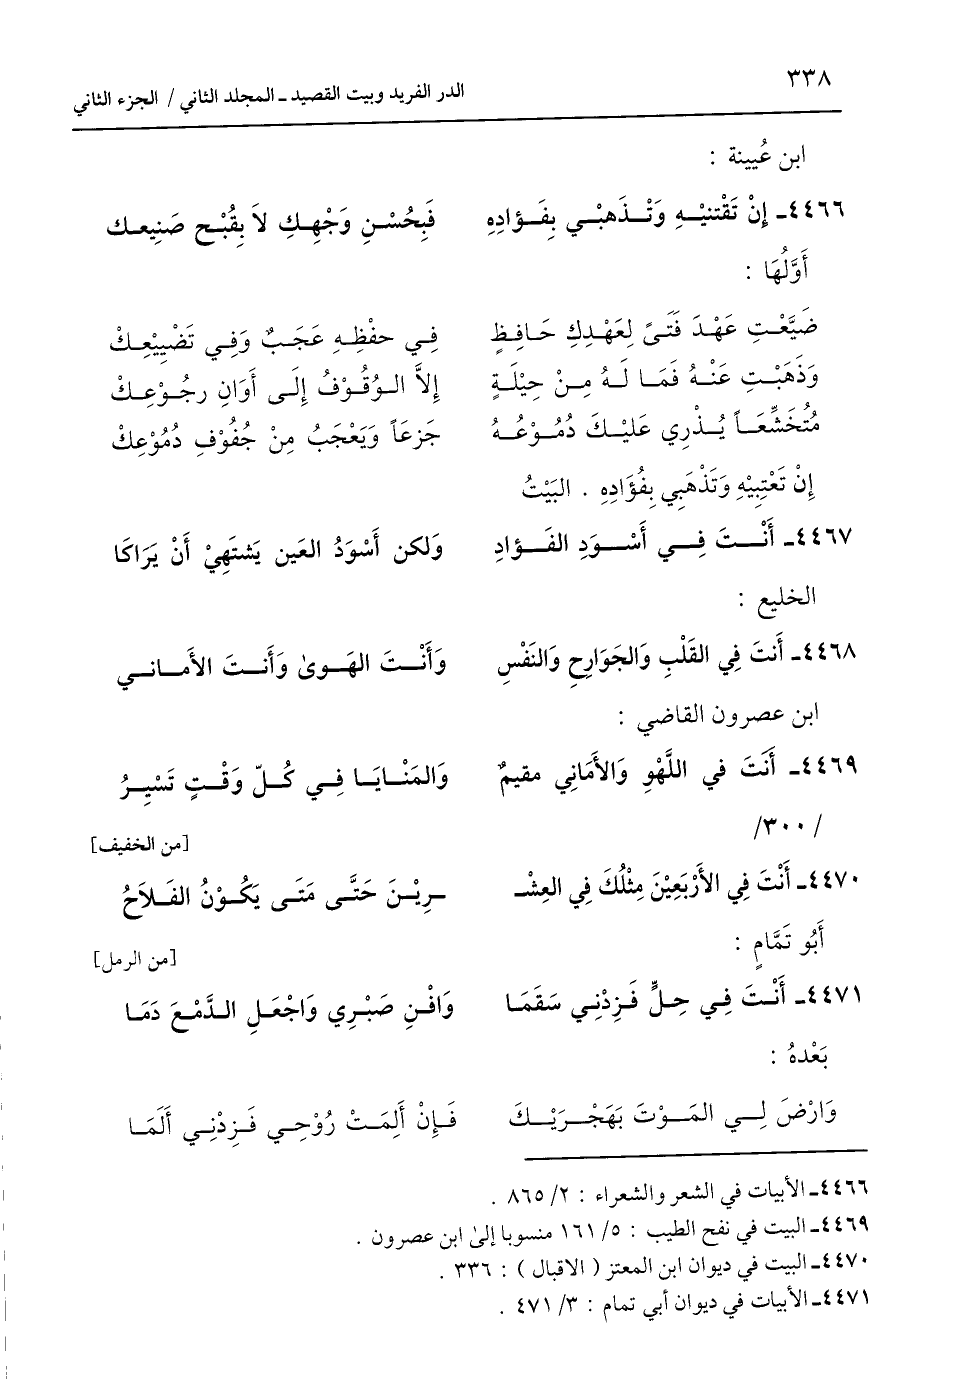 ٣٣٨
الدر الفريد وبيت القصيد ـ المجلد الثاني / الجزء الثاني
ابن عُيينة :
٤٤٦٦ـ إِنْ تَقْتنيْـهِ وَتْـذَهبْـي بِفَـؤادِهِ فَبِحُسْـنِ وَجْهِـكِ لاَ بِقُبْـحِ صَنِيعـك
أَوَّلُهَا :
ضَيَّعْـتِ عَهْـدَ فَتَـىً لِعَهْـدِكِ حَـافِـظٍ فِـي حفْظِـهِ عَجَـبٌ وَفِـي تَضْيِيْعِـكْ
وَذَهَبْـتِ عَنْـهُ فَمَـا لَـهُ مِـنْ حِيْلَـةٍ إِلاَّ الـوُقُـوْفُ إِلَـى أَوَانِ رجُـوْعِـكْ
مُتَخَشِّعَـاً يُـذْرِي عَلَيْـكَ دُمُـوْعَـهُ جَزعَاً وَيَعْجَبُ مِنْ جُفُوْفِ دُمُوْعِكْ
إِنْ تَعْتِبيْهِ وَتَذْهَبي بِفُؤَادِهِ . البَيْتُ
٤٤٦٧ـ أَنْـتَ فِـي أَسْـوَدِ الفَـؤادِ وَلكن أَسْوَدُ العَين يَشتَهِيْ أَنْ يَرَاكَا
الخليع :
٤٤٦٨ـ أَنتَ فِي القَلْبِ وَالجَوَارِحِ وَالنَفْسِ وَأَنْـتَ الهَـوىٰ وَأَنـتَ الأَمـانـي
ابن عصرون القاضي :
٤٤٦٩ـ أَنَتَ في اللَّهْوِ وَالأَمَاني مقيمٌ وَالمَنْـايَـا فِـي كُـلّ وَقْـتٍ تَسْيِـرُ
/٣٠٠/
[من الخفيف]
٤٤٧٠ـ أَنْتَ فِي الأَرْبَعِيْنَ مِثْلُكَ فِي العِشْـ ـرِيْـنَ حَتَّـى مَتَـى يَكُـوْنُ الفَـلاَحُ
أَبُو تَمَّامٍ :
[من الرمل]
٤٤٧١ـ أَنْـتَ فِـي حِـلٍّ فَـزِدْنِـي سَقَمَـا وَافْـنِ صَبْـرِي وَاجْعَـلِ الـدَّمْـعَ دَمَـا
بَعْدهُ :
وَارْضَ لِـي المَـوْتَ بَهَجْـرَيْـكَ فَـإِنْ أَلِمَـتْ رُوْحِـي فَـزِدْنِـي أَلَمَـا
٤٤٦٦ـ الأبيات في الشعر والشعراء : ٢/ ٨٦٥ .
٤٤٦٩ـ البيت في نفح الطيب : ٥/ ١٦١ منسوبا إلىٰ ابن عصرون .
٤٤٧٠ـ البيت في ديوان ابن المعتز ( الاقبال ) : ٣٣٦ .
٤٤٧١ـ الأبيات في ديوان أبي تمام : ٣/ ٤٧١ .